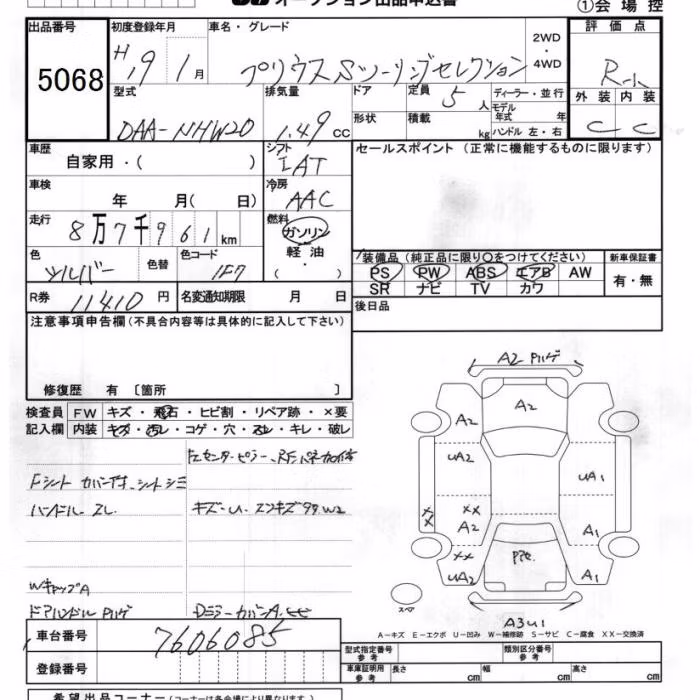 オークション出品申込書
①会場控
出品番号 5068
初度登録年月 H19年1月
車名・グレード プリウスSツーリングセレクション
2WD・4WD
評価点 R-
型式 DAA-NHW20
排気量 1.49 cc
ドア
定員 5人
ディーラー・並行
モデル年式 年
形状
積載 kg
ハンドル 左・右
外装 C
内装 C
車歴 自家用・( )
シフト IAT
セールスポイント(正常に機能するものに限ります)
車検 年 月( 日)
冷房 AAC
走行 8万7千961km
燃料 ガソリン・軽油・( )
色 シルバー
色替
色コード 1F7
装備品(純正品に限り○をつけてください)
PS PW ABS エアB AW
SR ナビ TV カワ
新車保証書 有・無
R券 11410円
名変通知期限 月 日
後日品
注意事項申告欄(不具合内容等は具体的に記入して下さい)
修復歴 有〔箇所 〕
検査員記入欄
FW キズ・飛石・ヒビ割・リペア跡・×要
内装 キズ・汚レ・コゲ・穴・スレ・キレ・破レ
Fシート カバー付、シートシミ
ハンドルスレ
キズ・U・エンキズ 99.W2
WキャップA
ドアハンドルPハゲ
DミラーカバーA.
A2 Pハゲ
A2
A2
UA2
UA1
XX
XX
A2
A1
XX
UA2
A1
スペア
A3U1
A-キズ E-エクボ U-凹み W-補修跡 S-サビ C-腐食 XX-交換済
車台番号 7606085
登録番号
型式指定番号
類別区分番号
車庫証明用参考 長さ cm 幅 cm 高さ cm
希望出品コーナー(コーナーは各会場により異なります。)